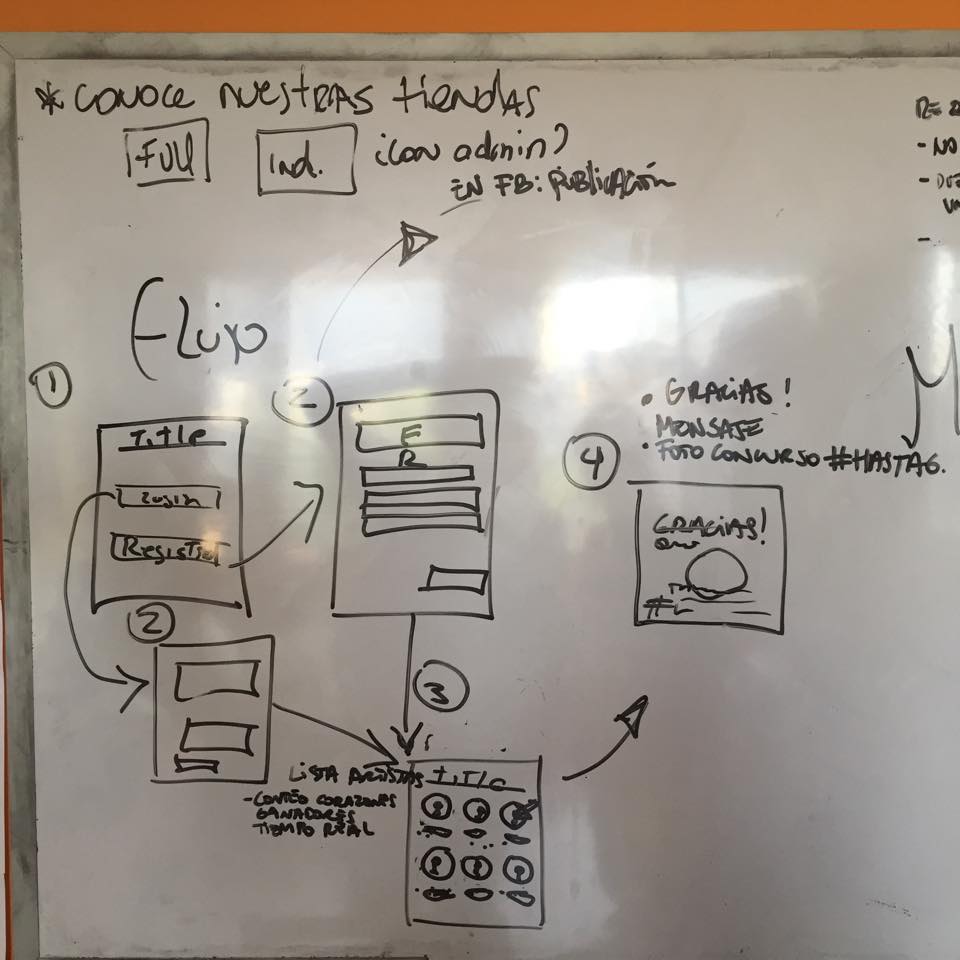 * CONOCE NUESTRAS tiENDAS
FUll
Ind.
¿Con admin?
EN FB: PUBLICACIÓN
- NO
FLUJO
1
Title
Login
Registro
2
F
R
2
3
LISTA ARTISTAS
- CONTEO CORAZONES
GANADORES
TIEMPO REAL
Title
4
• GRACIAS!
MENSAJE
• FOTO CONCURSO #HASTAG.
GRACIAS!
#
M